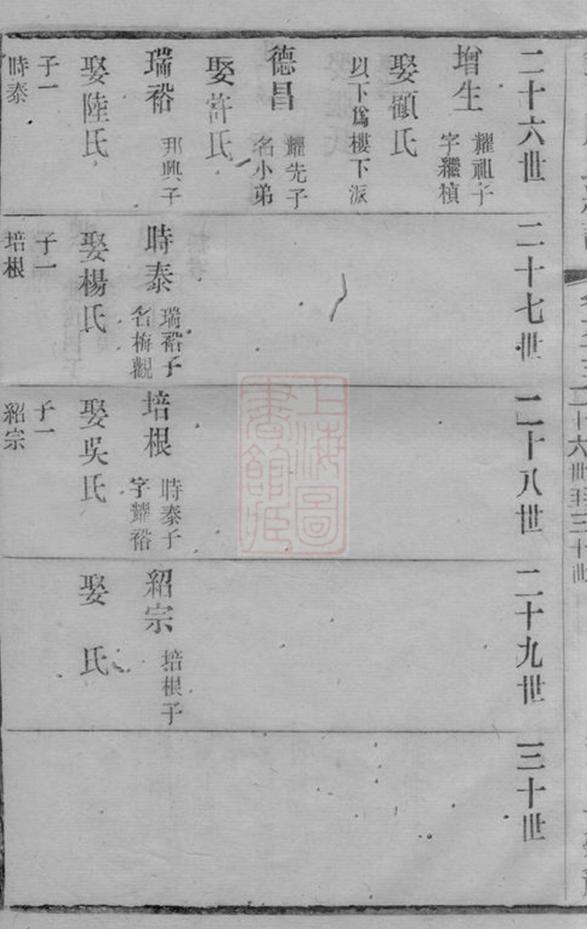 二十六世
增生
耀祖子
字繼楨
娶顧氏
以下爲樓下派
德昌
耀先子
名小弟
娶許氏
瑞裕
邦興子
娶陸氏
子一
時泰
二十七世
時泰
瑞裕子
名梅觀
娶楊氏
子一
培根
二十八世
培根
時泰子
字耀裕
娶吳氏
子一
紹宗
二十九世
紹宗
培根子
娶 氏
三十世
二十六世至三十世
上海圖書館